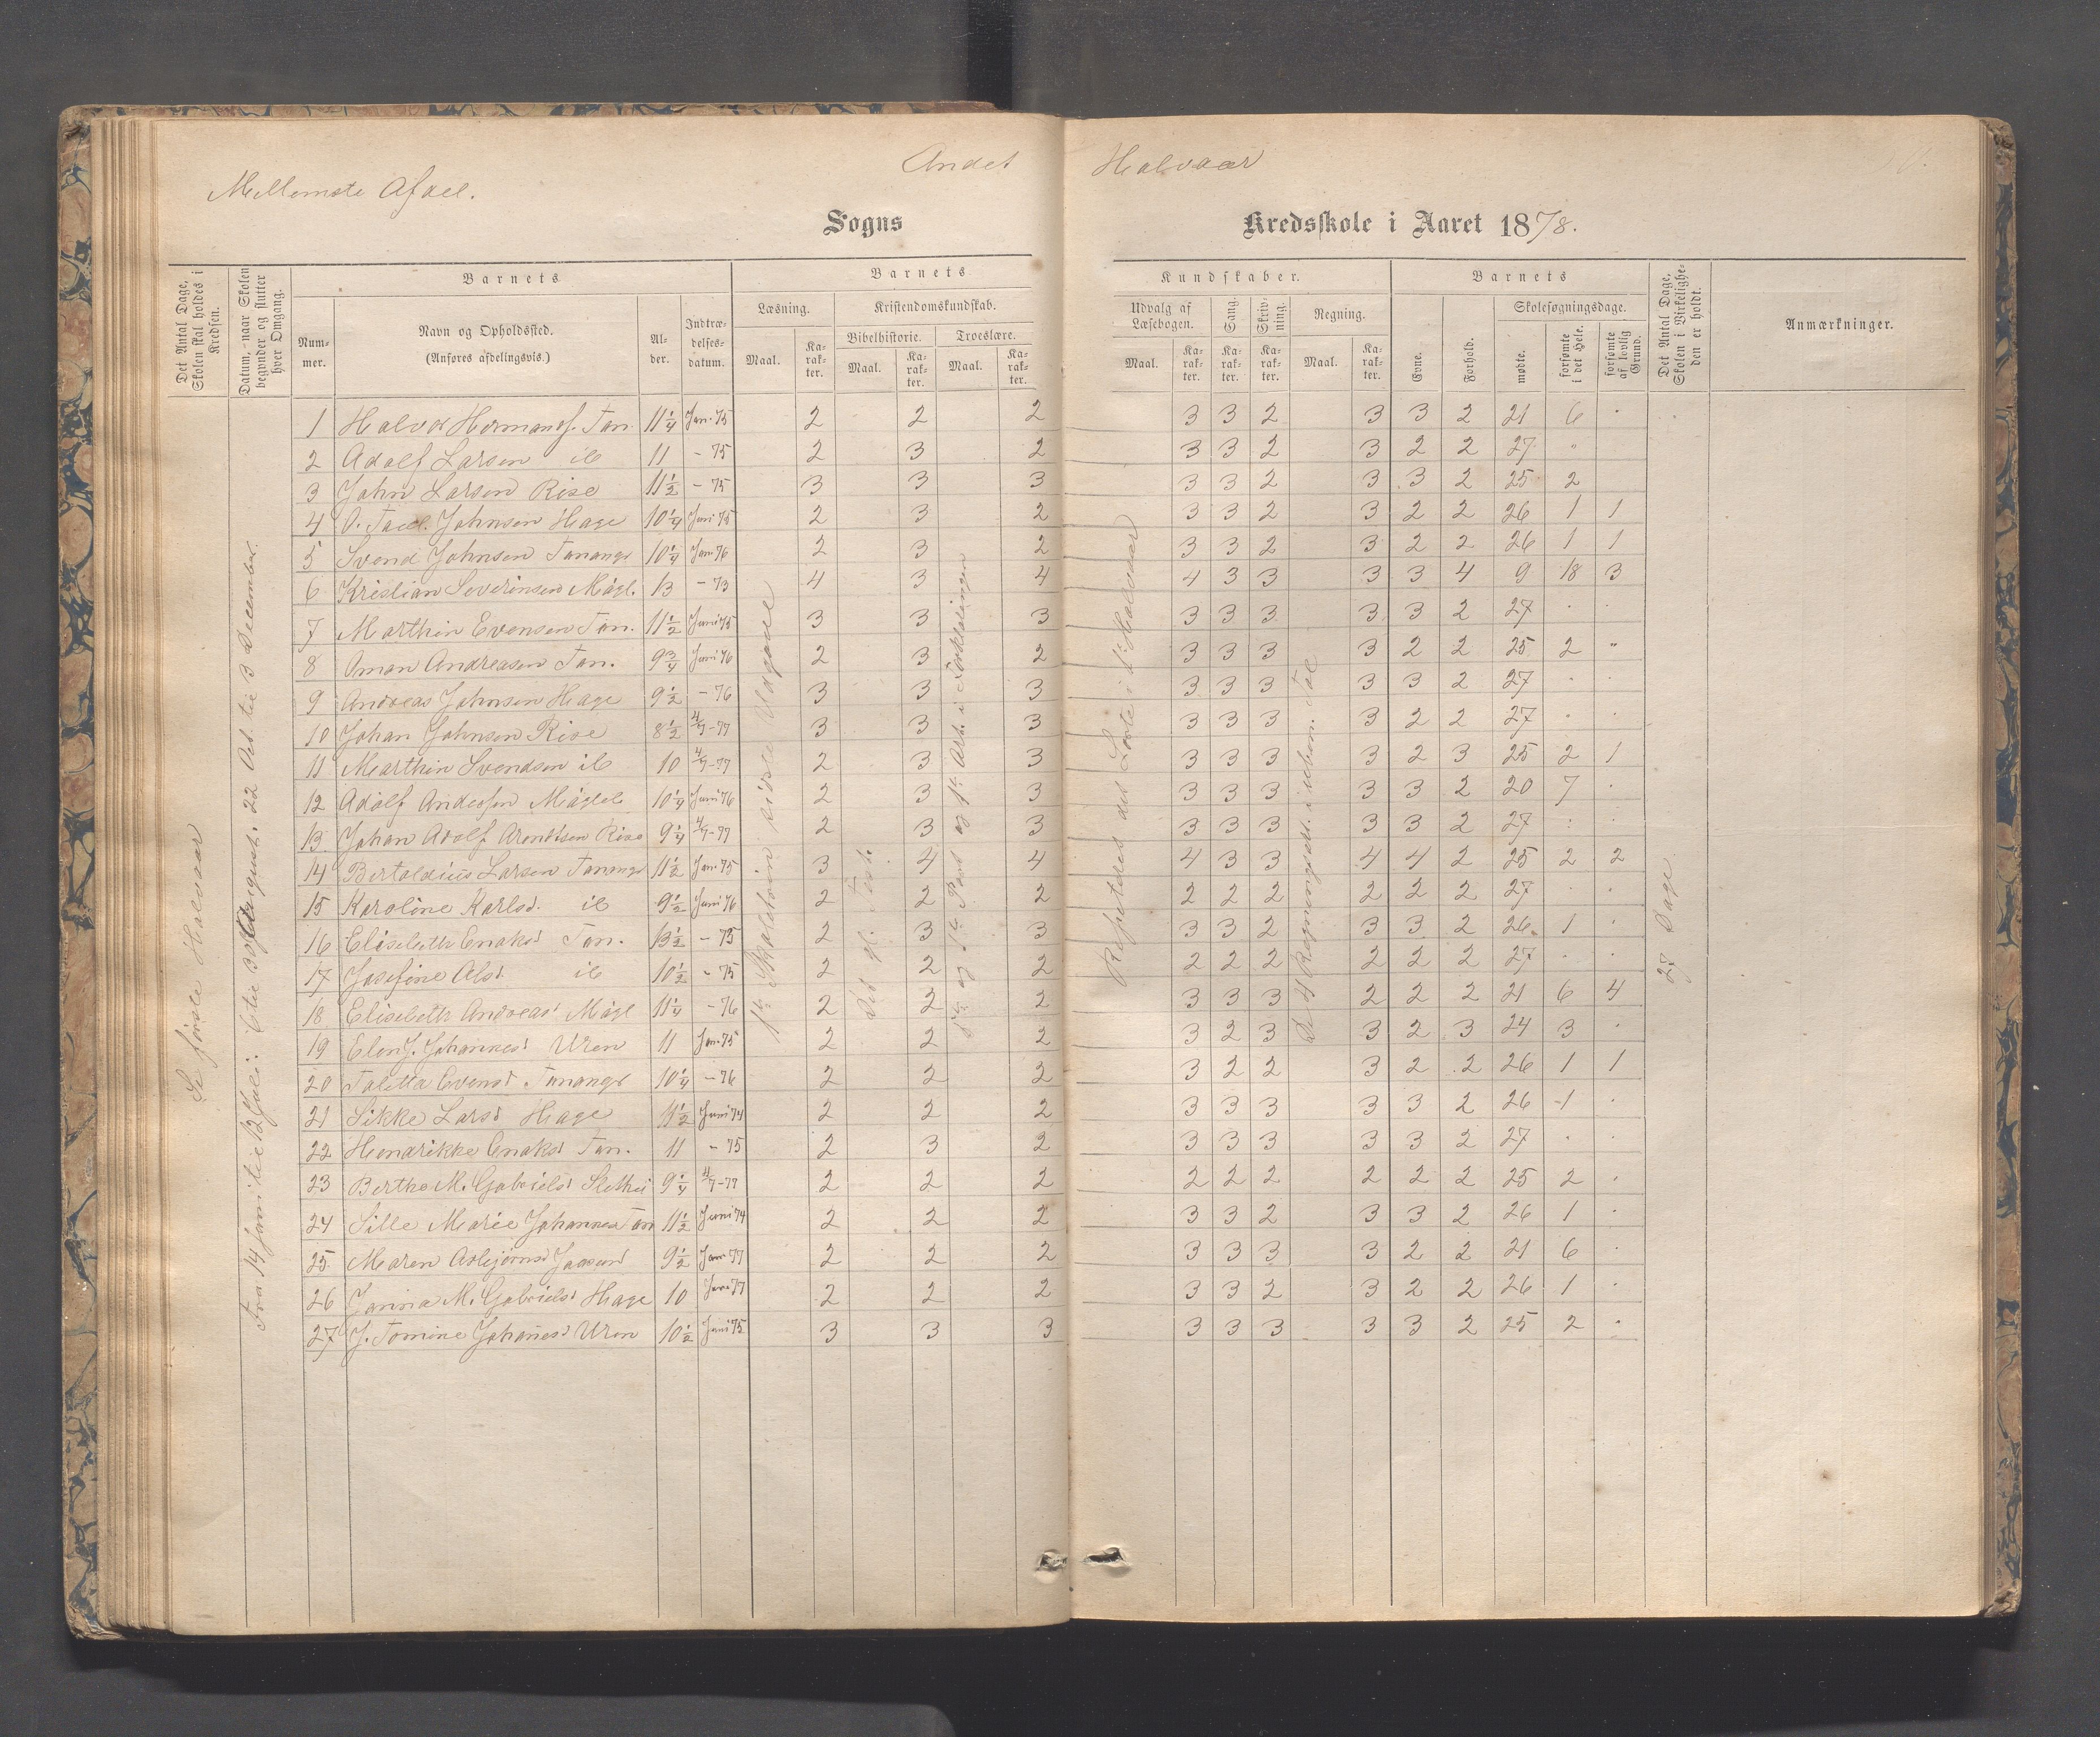 Mellemste Afdel.
Andet Halvaar
Sogns Kredsskole i Aaret 1878.
Det Antal Dage, Skolen skal holdes i Kredsen.
Datum, naar Skolen begynder og slutter hver Omgang.
Barnets
Nummer.
Navn og Opholdssted.
(Anføres afdelingsvis.)
Alder.
Indtrædelsesdatum.
Barnets Kundskaber.
Læsning.
Maal. Karakter.
Kristendomskundskab.
Bibelhistorie. Troeslære.
Maal. Karakter. Maal. Karakter.
Udvalg af Læsebogen.
Maal. Karakter.
Sang. Karakter.
Skrivning. Karakter.
Regning.
Maal. Karakter.
Barnets
Evne. Forhold.
Skolesøgningsdage.
mødte. forsømte i det Hele. forsømte af lovlig Grund.
Det Antal Dage, Skolen i Virkeligheden er holdt.
Anmærkninger.
Se første Halvaar
1ste Skoletrin sidste Udgave
Det gl. Test.
Repetedes det Læste i 1ste Halvaar
De 4 Regningsart. i uben. Tal
27 Dage
1 Halvor Hermands. Tan. 11 1/4 Jan. 75 2 2 2 3 3 2 3 3 2 21 6 .
2 Adolf Larsen ib 11 - 75 2 3 2 3 3 2 3 2 2 27 "
3 John Larsen Rise 11 1/2 - 75 3 3 3 3 3 2 3 3 2 25 2
4 O. Johnsen Hage 10 1/4 Juni 75 2 3 2 3 3 2 3 2 2 26 1 1
5 Svend Johnsen Tanangr 10 1/4 Jan 76 2 3 2 3 3 2 3 2 2 26 1 1
6 Kristian Severinsen Mågl. 13 - 73 4 3 4 4 3 3 3 3 4 9 18 3
7 Marthin Evensen Tan. 11 1/2 Juni 75 3 3 3 3 3 3 3 3 2 27 . .
8 Oman Andreasen Tan. 9 3/4 Juni 76 2 3 2 3 3 3 3 2 2 25 2 "
9 Andreas Johnsen Hage 9 1/2 - 76 3 3 3 3 3 3 3 3 2 27 . .
10 Johan Johnsen Rise 8 1/2 4/7-77 3 3 3 3 3 3 3 2 2 27 . .
11 Marthin Svendsen ib 10 4/7-77 2 3 3 3 3 3 3 2 3 25 2 1
12 Adolf Andersen Mågleb 10 1/4 Juni 76 2 3 3 3 3 3 3 3 2 20 7 .
13 Johan Adolf Arentsen Rise 9 1/4 4/7-77 2 3 3 3 3 3 3 3 2 27 . .
14 Bertoldius Larsen Tanangr 11 1/2 Jan. 75 3 4 4 4 3 3 4 4 2 25 2 2
15 Karoline Karlsd. ib 9 1/2 Juni 76 2 2 2 2 2 2 2 2 2 27 . .
16 Elisebeth Enoksd Tan. 13 1/2 - 75 2 3 3 3 3 2 3 3 2 26 1 .
17 Josefine Olsd ib 10 1/2 - 75 2 2 2 2 2 2 2 2 2 27 . .
18 Elisebeth Andreasd Mågl 11 1/4 - 76 2 2 2 3 3 3 2 2 2 21 6 4
19 Elen J. Johannesd Uren 11 Jan. 75 2 2 2 3 2 3 3 2 3 24 3 .
20 Taletta Evensd. Tanangr 10 1/4 - 76 2 2 2 3 2 2 3 2 2 26 1 1
21 Sikke Larsd Hage 11 1/2 Juni 74 2 2 2 3 3 3 3 3 2 26 1 .
22 Hendrikke Enoksd Tan. 11 - 75 2 3 2 3 3 3 3 3 2 27 . .
23 Berthe M. Gabrielsd 9 1/4 4/7-77 2 2 2 2 2 2 2 2 2 25 2 .
24 Sille Marie Johannesd Tan 11 1/2 Juni 74 2 2 2 3 3 2 3 3 2 26 1 .
25 Maren Asbjørnsd Jaasund 9 1/2 Jan. 77 2 2 2 3 3 3 3 2 2 21 6 .
26 Janna M. Gabrielsd Hage 10 Juni 77 2 2 2 3 3 2 3 2 2 26 1 .
27 J. Tomine Johanesd Uren 10 1/2 Juni 75 3 3 3 3 3 3 3 3 2 25 2 .